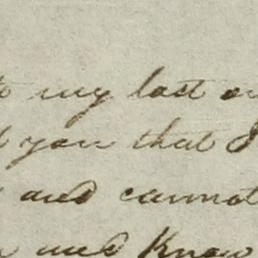 to my last
you that I
and cannot
and know